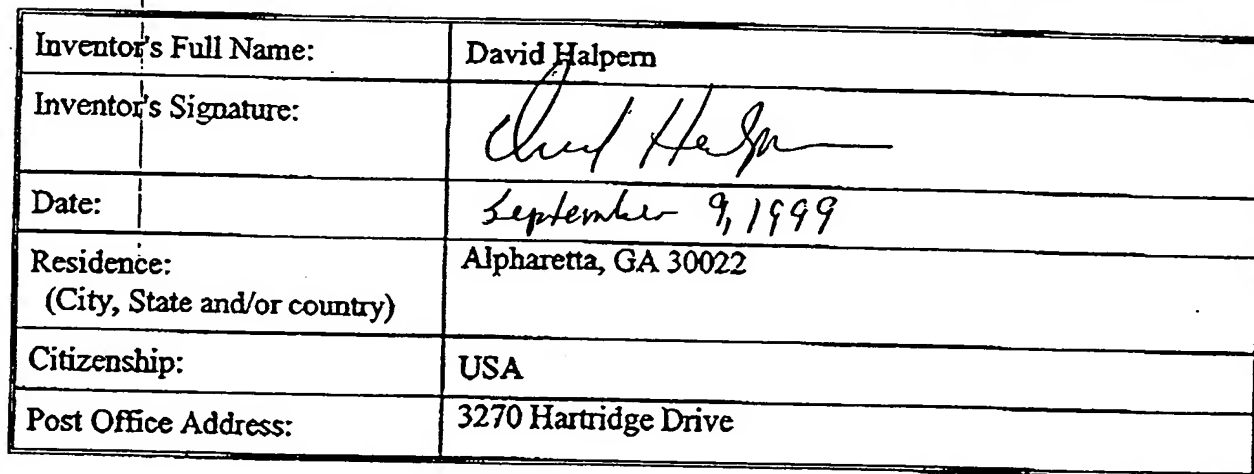 Inventor's Full Name: David Halpern
Inventor's Signature: David Halpern
Date: September 9, 1999
Residence: Alpharetta, GA 30022
(City, State and/or country)
Citizenship: USA
Post Office Address: 3270 Hartridge Drive